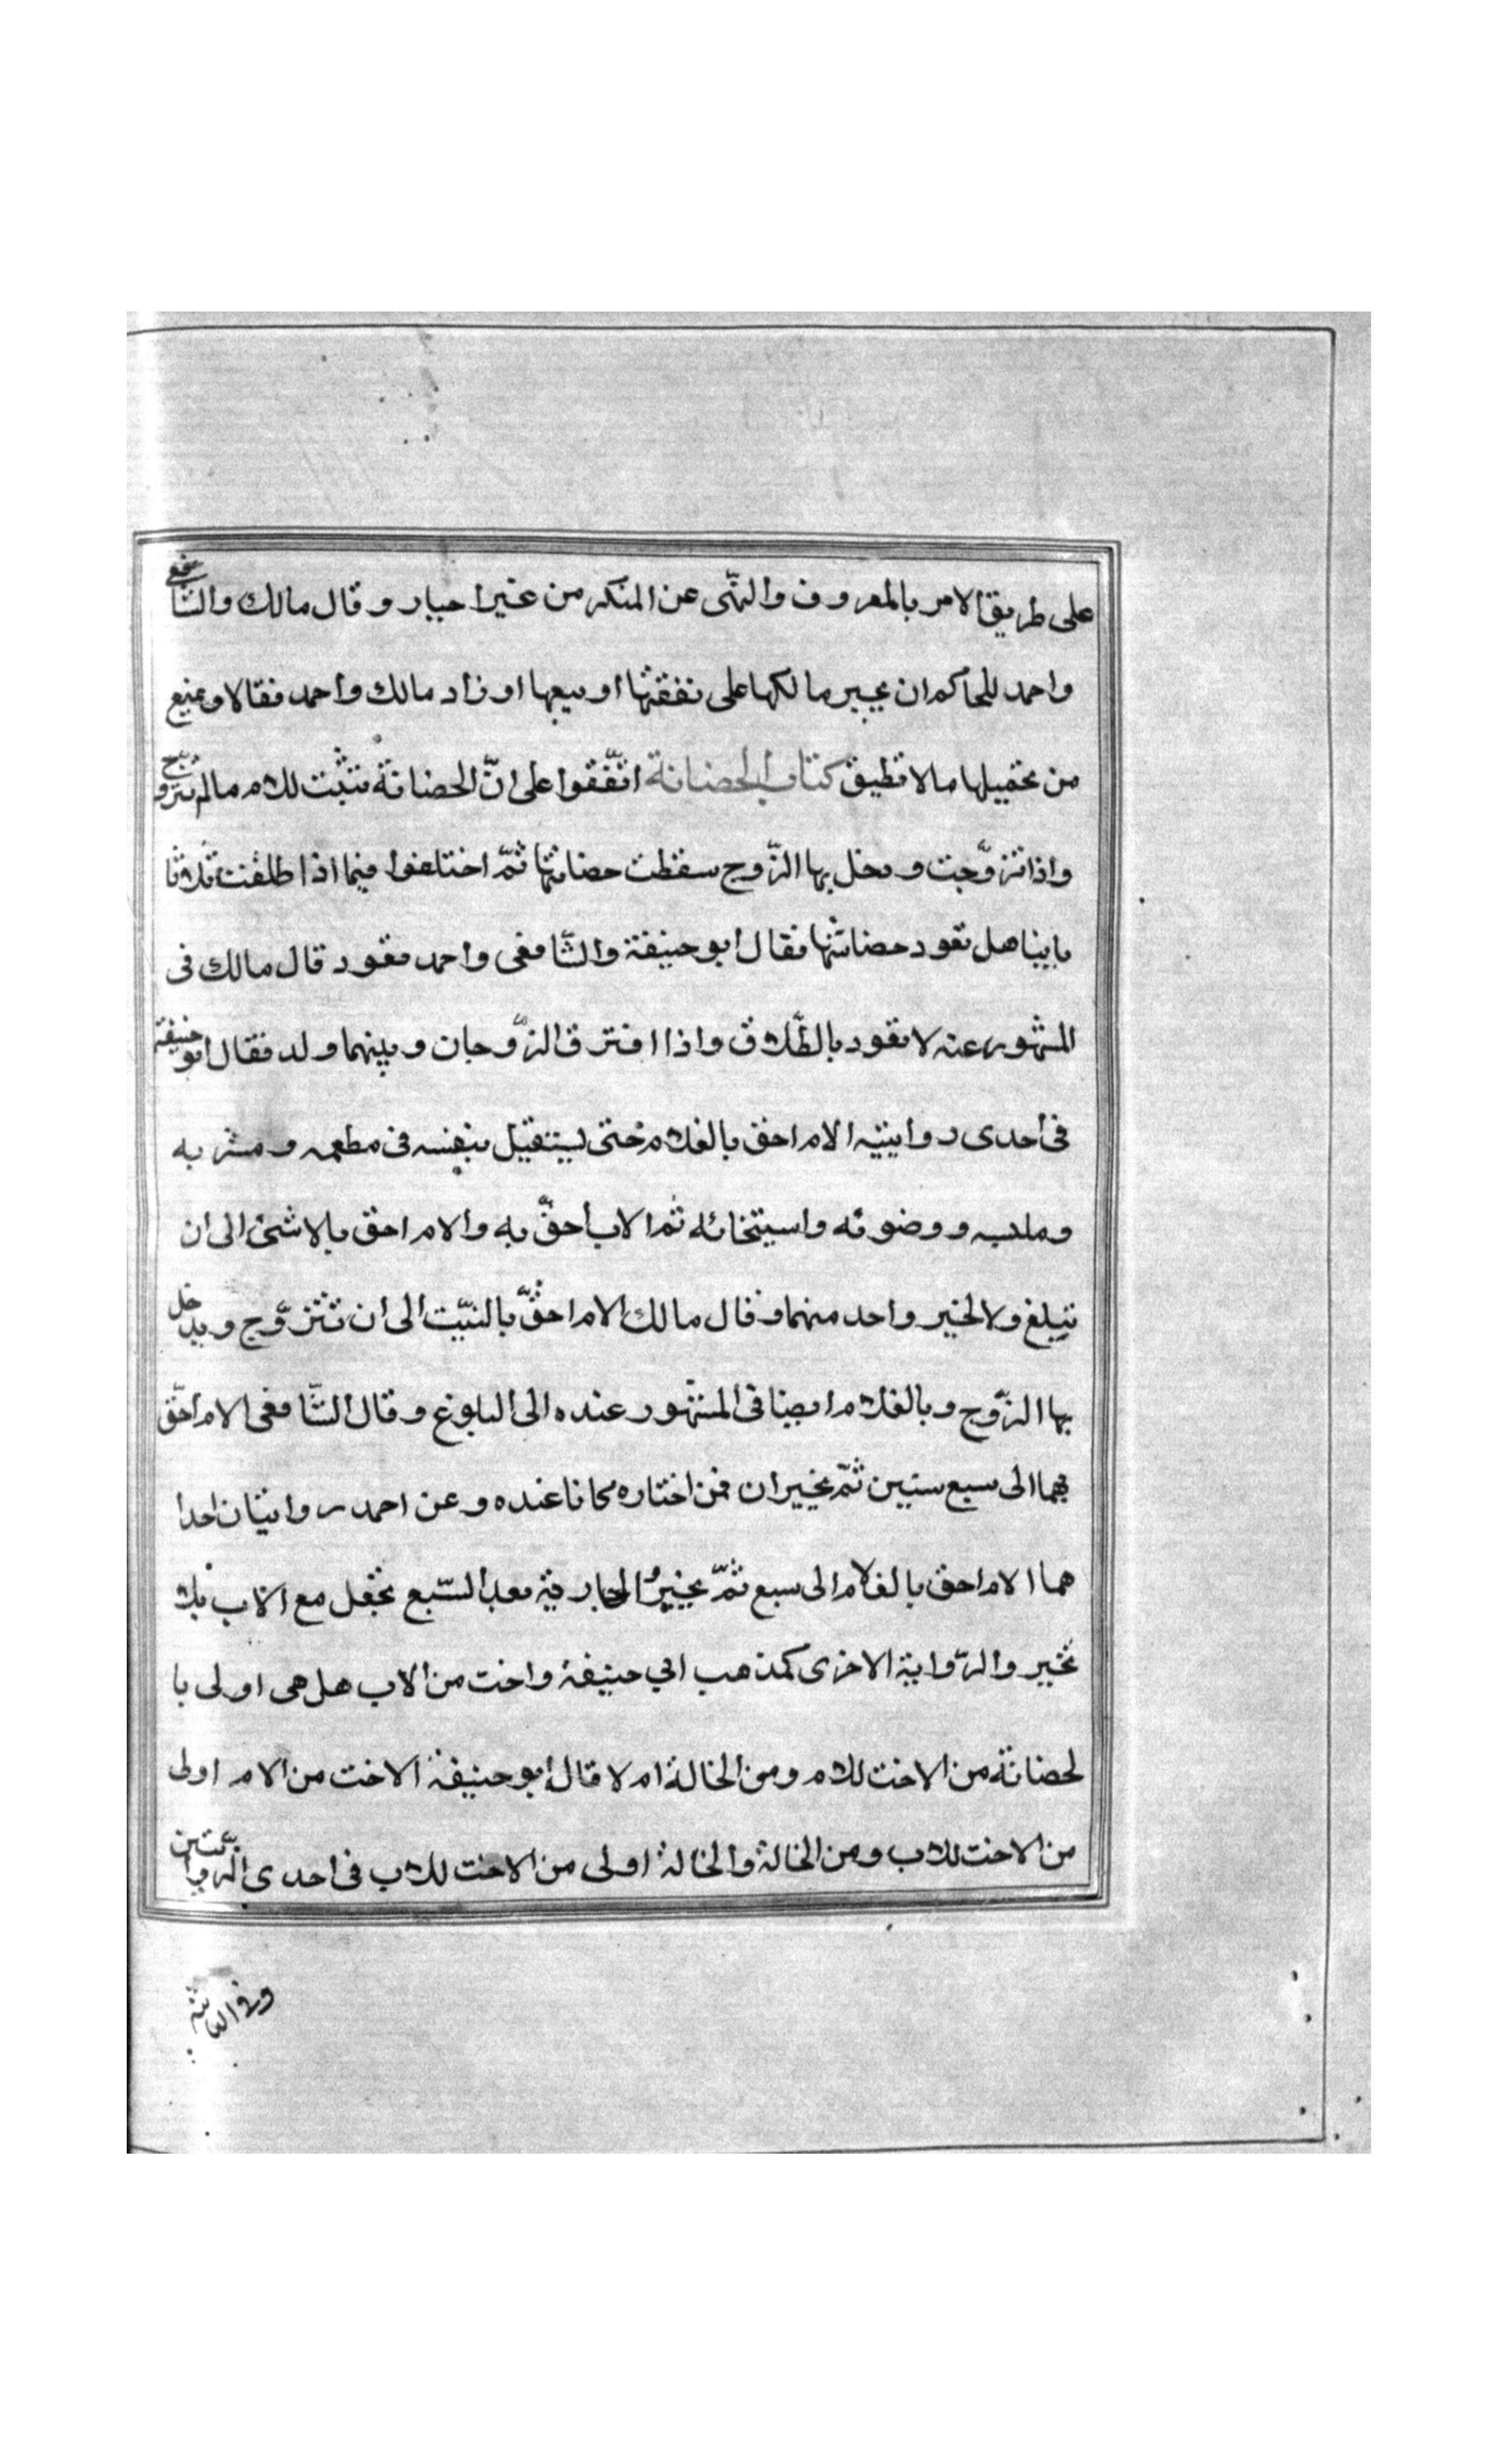 على طريق الامر بالمعروف والنهّى عن المنكر من غير اجبار وقال مالك والشّافعى
واحمد للحاكم ان يجبر مالكها على نفقتها او بيعها او زاد مالك واحمد فقالا ويمنع
من تحميلها ما لا تطيق كتاب الحضانة اتّفقوا على انّ الحضانة تثبت للام ما لم تتزوّج
واذا تزوّجت ودخل بها الزّوج سقطت حضانتها ثمّ اختلفوا فيما اذا طلقت ثلاثا
باينا هل تعود حضانتها فقال ابو حنيفة والشّافعى واحمد تعود قال مالك فى
المشهور عنه لا تعود بالطّلاق واذا افترق الزّوجان وبينهما ولد فقال ابو حنيفة
فى احدى روايتيه الام احق بالغلام حتى يستقيل بنفسه فى مطعمه ومشربه
وملبسه ووضوئه واستنجائه ثم الاب احقّ به والام احق بالانثى الى ان
تبلغ ولا لخير واحد منهما وقال مالك الام احقّ بالنبّت الى ان تتزوّج ويدخل
بها الزّوج وبالغلام ايضا فى المشهور عنده الى البلوغ وقال الشّافعى الام احّق
بهما الى سبع سنين ثمّ يخيران فمن اختاره كانا عنده وعن احمد روايتان احدا
هما الام احق بالغلام الى سبع ثمّ يخيرُ الجارية بعد السّبع تجعل مع الاب بلا
تخير والرّواية الاخرى كمذهب ابي حنيفة واخت من الاب هل هى اولى با
لحضانة من الاخت للام ومن الخالة ام لا قال ابو حنيفة الاخت من الام اولى
من الاخت للاب ومن الخالة والخالة اولى من الاخت للاب فى احدى الرّوايّتين
وفي الثانية